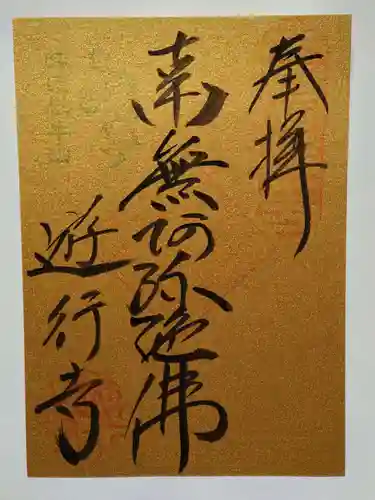 奉拝
南無阿弥陀佛
遊行寺